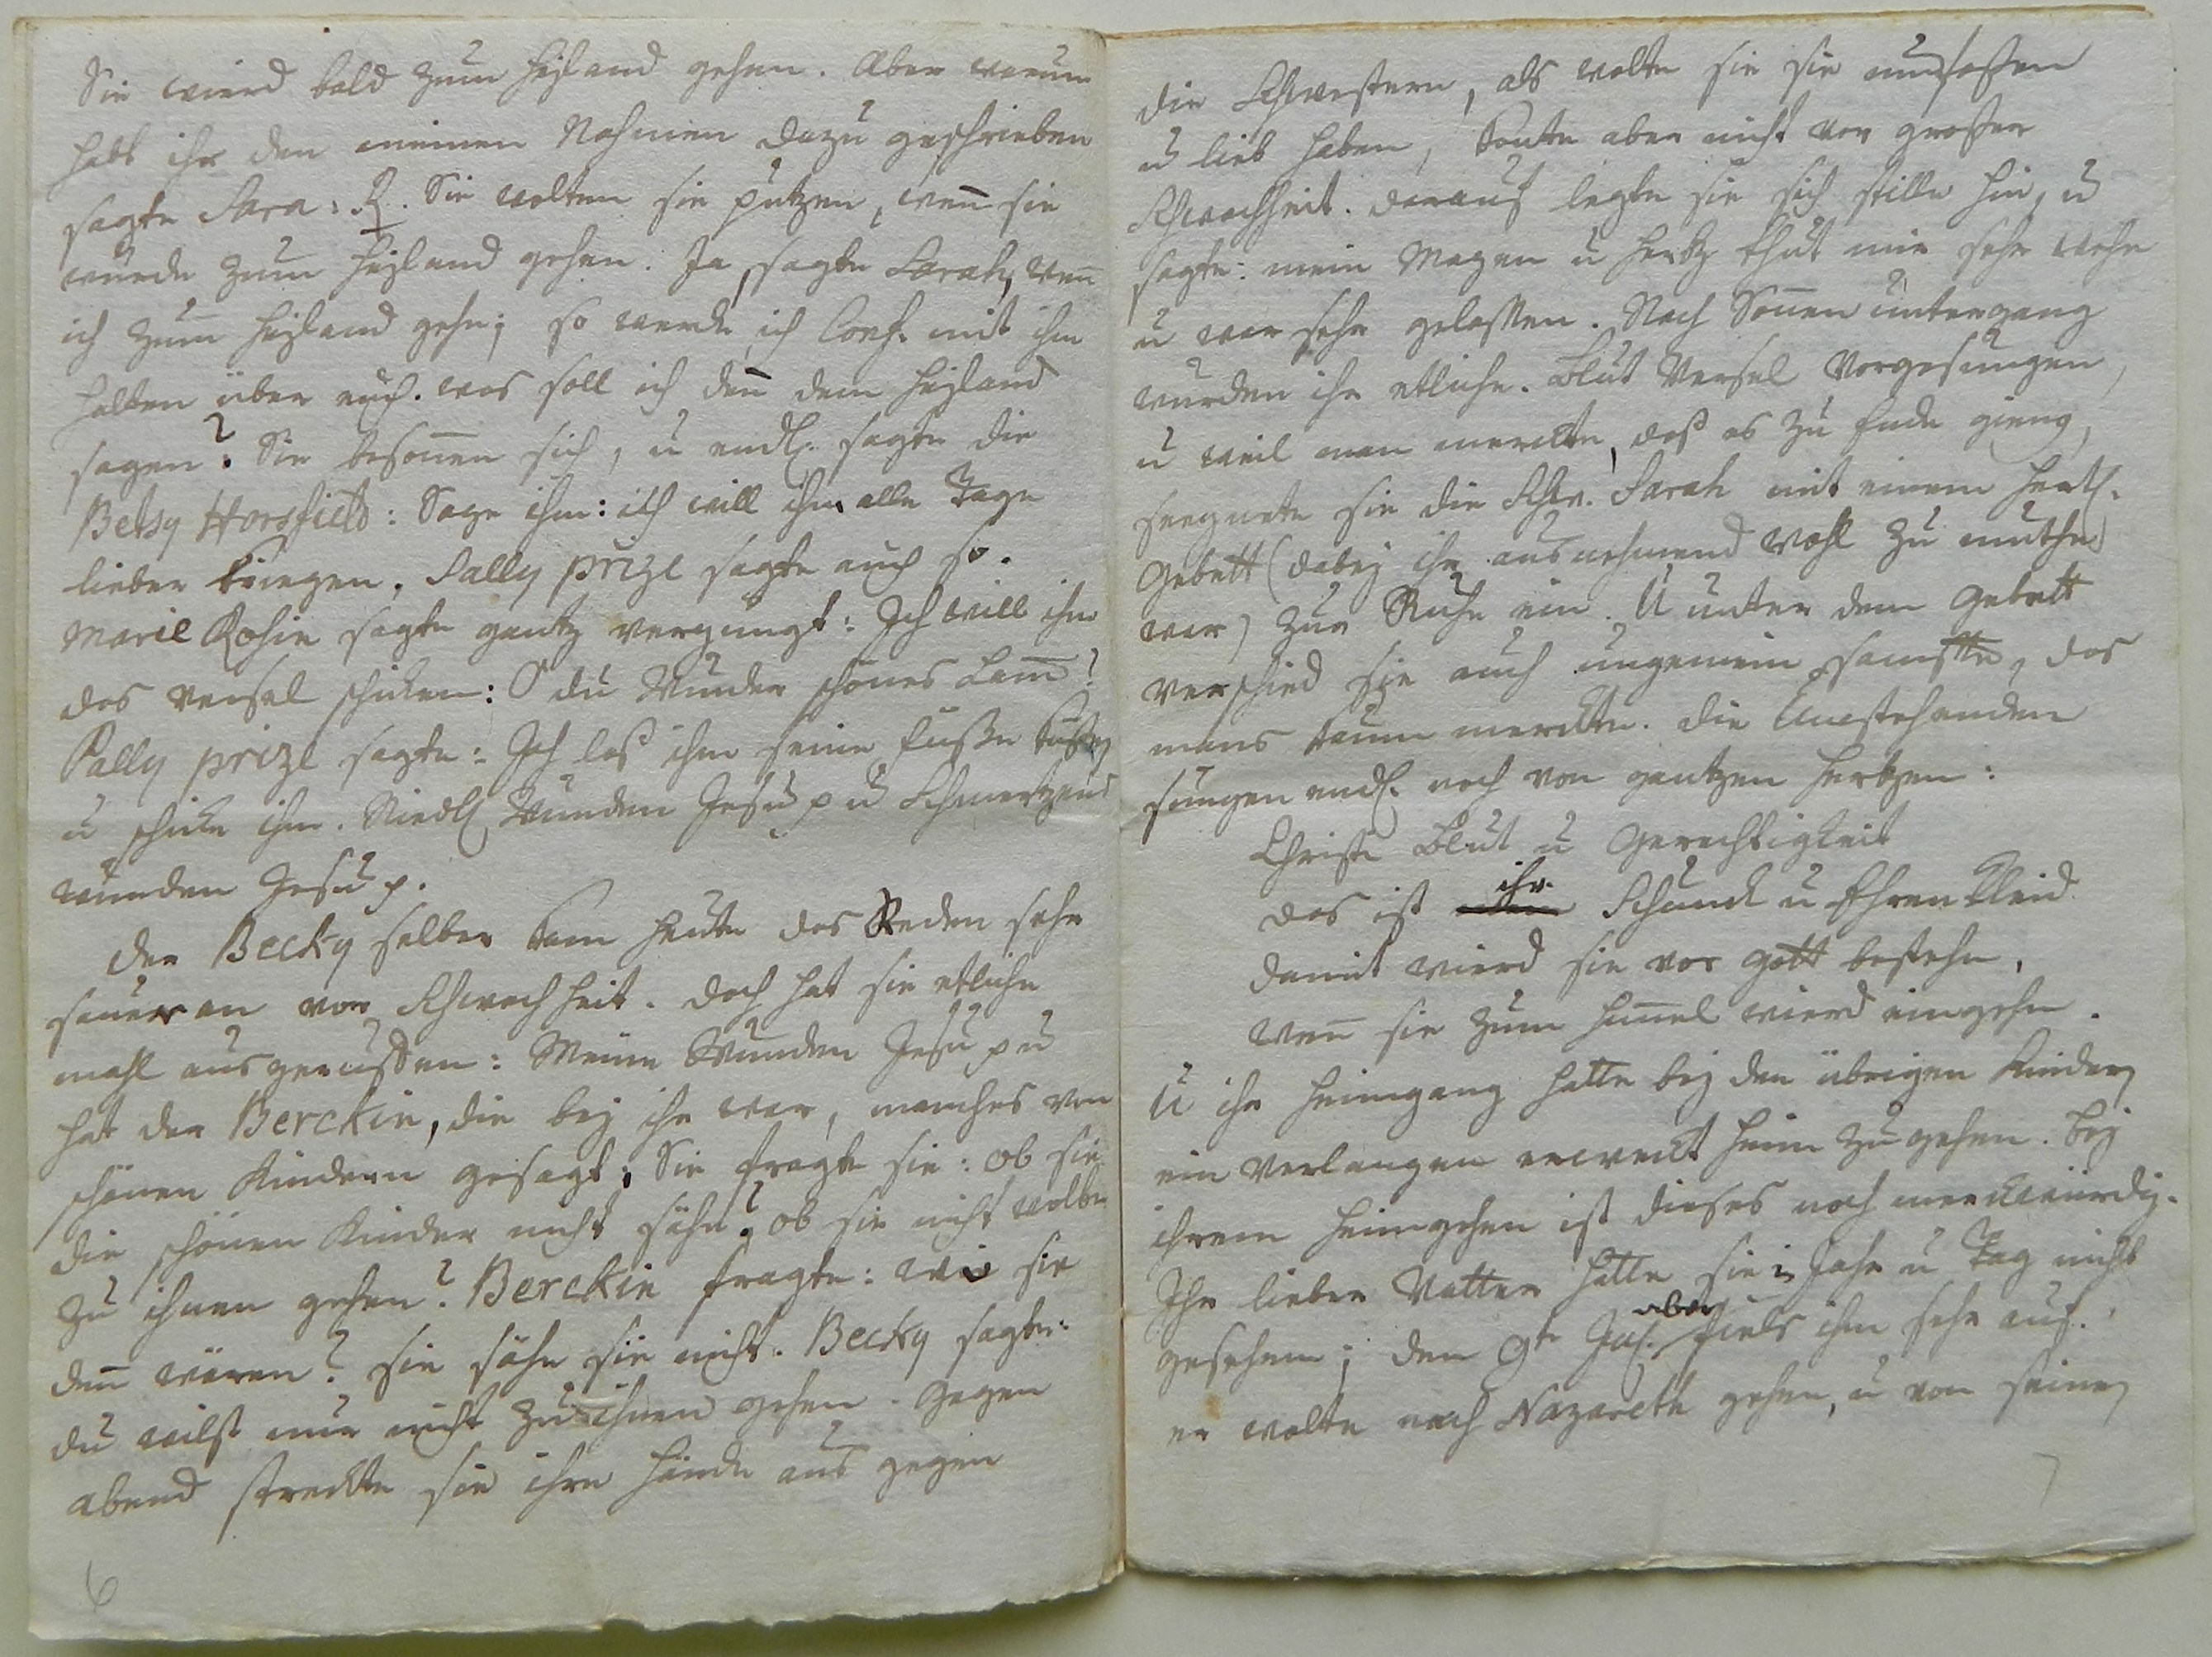 Sie wird bald zum Heyland gehen. Aber warum
habt ihr den meinen Nahmen dazu geschrieben
sagte Sara: R. Sie wolten sie putzen, wen̄ sie
würde zum Heyland gehen. Ja, sagte Sarah, wen̄
ich zum Heyland gehe; so werde ich Conf. mit ihm
halten über euch. was soll ich den̄ dem Heyland
sagen? Sie besonnen sich, u endl. sagte die
Betsy Horsfield: Sage ihm: ich will ihn alle Tage
lieber kriegen. Sally prize sagte auch so.
Marie Rosin sagte gantz vergnügt: Ich will ihm
das versel schicken: O du Wunder schönes Lam̄?
Pally prize sagte: Ich laß ihm seine Füße küßen
u schicke ihm. Niedl. Wunden Jesu p u Schmertzens
wunden Jesu p.
Der Becky selber kam heute das Reden sehr
sauer an vor Schwachheit. doch hat sie etliche
mahl ausgeruffen: Meine Wunden Jesu p u
hat der Berckin, die bey ihr war, manches von
schönen Kindern gesagt; Sie fragte sie: ob sie
die schönen Kinder nicht sähe? ob sie nicht wolte
zu ihnen gehen? Berckin fragte: wo sie
den̄ wären? sie sähe sie nicht. Becky sagte:
du wilst nur nicht zu ihnen gehen. Gegen
abend streckte sie ihre Hände aus gegen
6
die Schwestern, als wolte sie sie umfaßen
u lieb haben, konte aber nicht vor großer
Schwachheit. darauf legte sie sich stille hin, u
sagte: mein Magen u Hertz thut mir sehr wehe
u war sehr gelaßen. Nach Son̄en untergang
wurden ihr etliche Blut Versel vorgesungen,
u weil man merckte, daß es zu Ende gieng,
seegnete sie die Schw. Sarah mit einem hertzl.
Gebett (dabey ihr ausnehmend wohl zu muthe
war) zur Ruhe ein. U unter dem Gebett
verschied sie auch ungemein sanffte, das
mans kaum merckte. die Umstehenden
sungen endl. noch von gantzen Hertzen:
Christi Blut u Gerechtigkeit
das ist ihr Schmuck u Ehren Kleid
damit wird sie vor Gott bestehn,
wen̄ sie zum Him̄el wird eingehn.
U ihr Heimgang hatte bey den übrigen Kindern
ein verlangen erweckt heim zu gehen. bey
ihrem Heimgehen ist dieses noch merckwürdig.
Ihr lieber Vatter hatte sie in Jahr u Tag nicht
gesehen; den 9te Jul. aber fiels ihm sehr auf.
er wolte nach Nazareth gehen, u von seinen
7